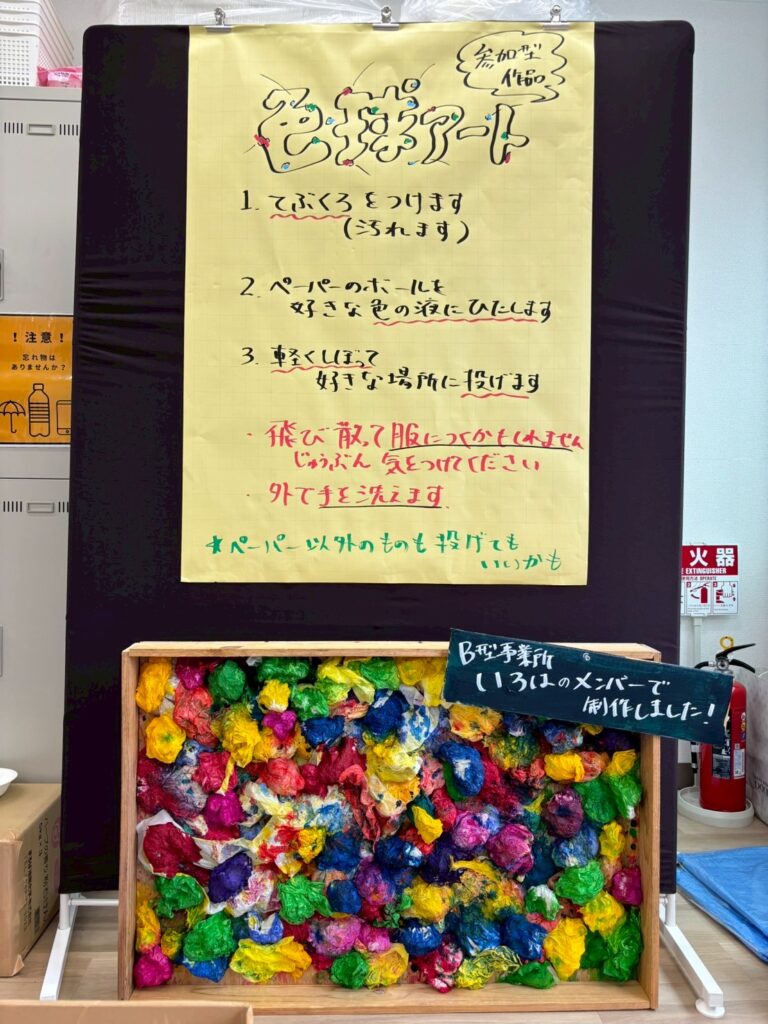 参加型
作品
色球アート
1. てぶくろをつけます
(汚れます)
2. ペーパーのボールを
好きな色の液にひたします
3. 軽くしぼって
好きな場所に投げます
・飛び散って服につくかもしれません
じゅうぶん気をつけてください
・外で手を洗えます
★ペーパー以外のものも投げても
いいかも
！注意！
忘れ物は
ありませんか？
火器
EXTINGUISHER
B型事業所
いろはのメンバーで
制作しました！